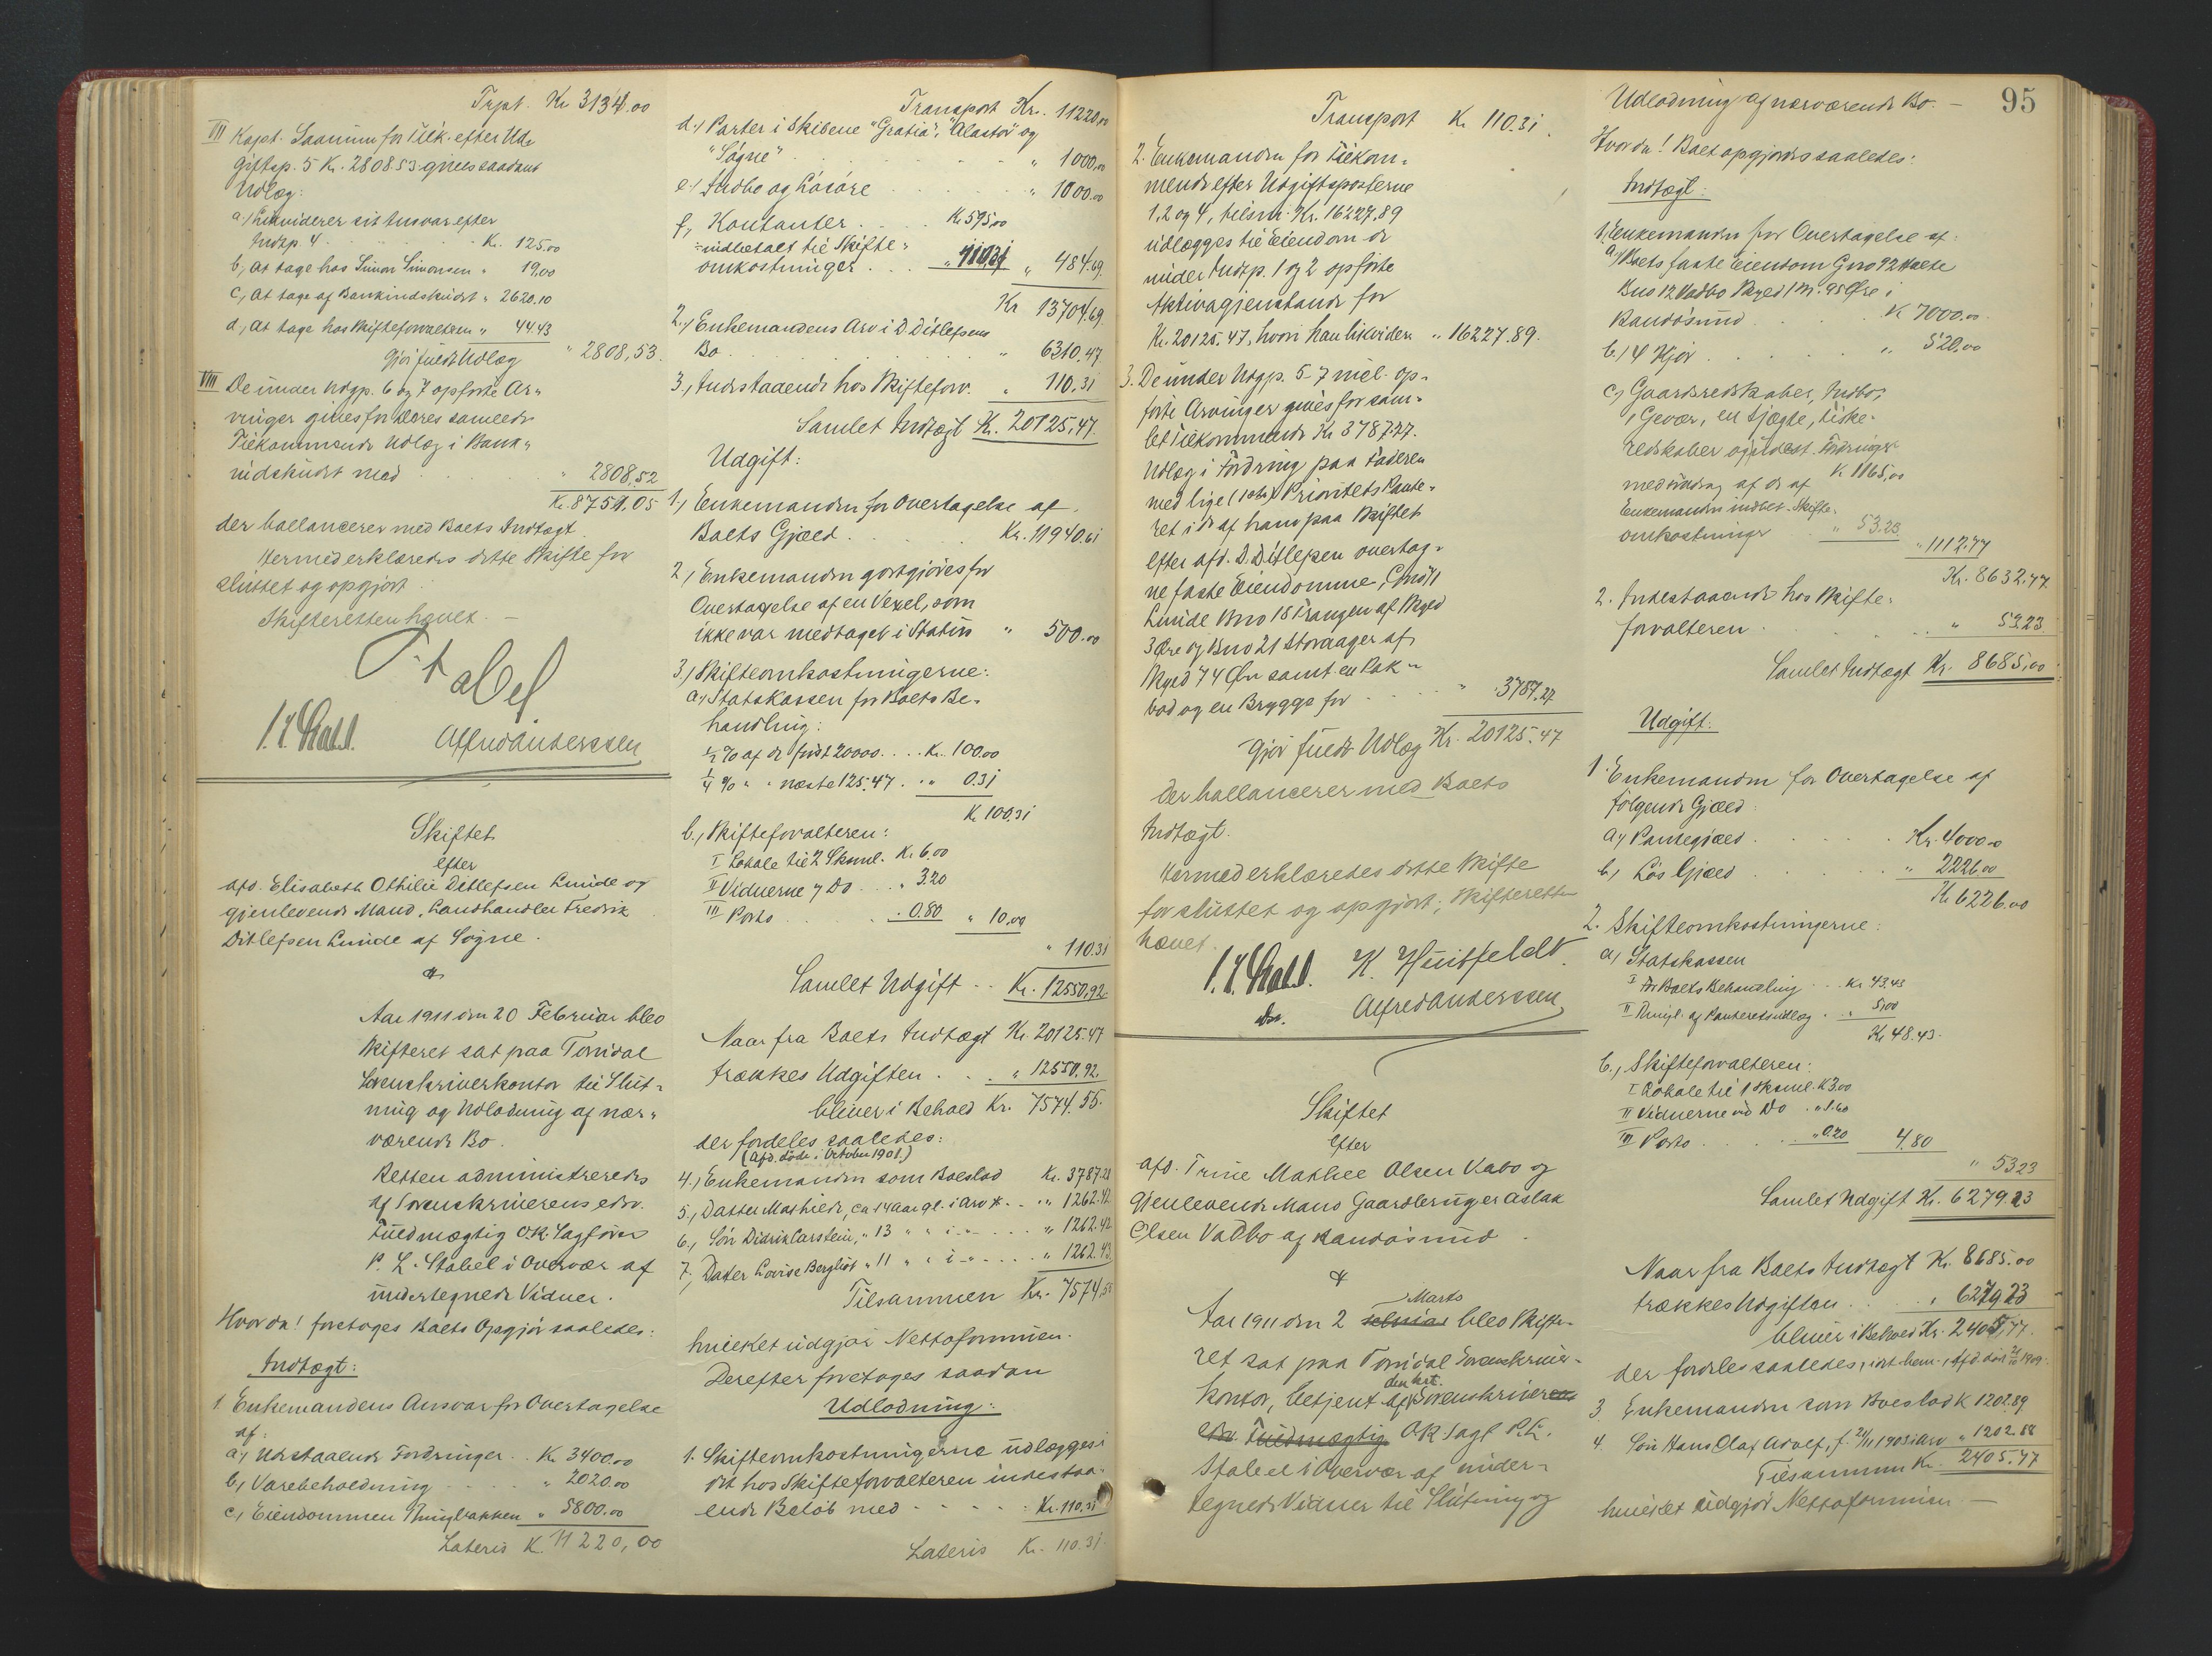 Trpt. Kr 3134.00
VII Kapt. Saanum for Tilk. efter Ud-
giftsp. 5 Kr. 2808.53 gives saadant
Udlæg:
a, Likviderer sit Ansvar efter
Indtp. 4 . . . Kr. 125.00
b, At tage hos Simon Simonsen " 19,00
c, At tage af Bankindskudt " 2620.10
d, At tage hos Skifteforvalteren " 44.43
Gjør fuldt Udlæg " 2808,53.
VIII De under Udgp. 6 og 7 opførte Ar-
vinger gives for deres samlede
Tilkommende Udlæg i Bank-
indskudt med . . . " 2808,52
Kr. 8751,05
der ballancerer med Boets Indtægt.
Hermed erklæredes dette Skifte for
sluttet og opgjort.
Skifteretten hævet. —
Stabel
Alfred Anderssen
Skiftet
efter
afd. Elisabeth Othilie Ditlefsen Lunde og
gjenlevende Mand, Landhandler Fredrik
Ditlefsen Lunde af Søgne.
Aar 1911 den 20 Februar blev
Skifteret sat paa Torridal
Sorenskriverkontor til Slut-
ning og Udlodning af nær-
værende Bo.
Retten administreredes
af Sorenskriverens edsv.
Fuldmægtig O.R. Sagfører
P. L. Stabel i Overvær af
undertegnede Vidner.
Hvorda! foretoges Boets Opgjør saaledes:
Indtægt:
1. Enkemandens Ansvar for Overtagelse
af:
a, Udestaaende Fordringer . . Kr. 3400.00
b, Varebeholdning . . . " 2020.00
c, Eiendommen Thingbakken " 5800.00
Lateris K. 11220,00
Transport Kr. 11220,00
d, Parter i Skibene "Gratia", "Alastor" og
"Søgne" . . . " 1000,00
e, Indbo og Løsøre . . . " 1000.00
f, Kontanter . . . Kr 595,00
÷ indbetalt til Skifte-
omkostninger . . . " 110,31 " 484.69
Kr 13704.69
2, Enkemandens Arv i D. Ditlefsens
Bo . . . " 6310.47
3, Indestaaende hos Skifteforv. " 110.31
Samlet Indtægt Kr. 20125.47
Udgift:
1, Enkemanden for Overtagelse af
Boets Gjæld . . . Kr. 11940.61
2, Enkemanden godtgjøres for
Overtagelse af en Vexel, som
ikke var medtaget i Status " 500.00
3, Skifteomkostningerne:
a, Statskassen for Boets Be-
handling:
½ % af de første 20000 . . . Kr. 100.00
¼ % " " næste 125.47 . " 0.31
K. 100.31
b, Skifteforvalteren:
I Lokale til 2 Skaml. Kr. 6.00
II Vidnerne v Do . . . " 3.20
III Porto . . . . 0.80 " 10,00
" 110.31
Samlet Udgift . . Kr. 12550,92.
Naar fra Boets Indtægt Kr. 20125.47
trækkes Udgiften . . . " 12550.92.
bliver i Behold Kr. 7574.55.
der fordeles saaledes:
(Afd. døde i Oktober 1901.)
4, Enkemanden som Boeslod Kr. 3787.28
5, Datter Mathilde, ca 14 Aar gl. i Arv Kr. . " 1262.42
6, Søn Didrik Carstein, " 13 " " i " . . . " 1262.42
7, Datter Lovise Bergliot " 11 " " i " . . . " 1262.43
Tilsammen Kr. 7574,55
hvilket udgjør Nettoformuen.
Derefter foretoges saadan
Udlodning:
1. Skifteomkostningerne udlægges i
det hos Skifteforvalteren indestaa-
ende Beløb med . . . Kr. 110.31
Lateris Kr. 110.31
Transport Kr 110.31.
2. Enkemanden for Tilkom-
mende efter Udgiftsposterne
1, 2 og 4, tilsm. Kr. 16227.89
udlægges til Eiendom de
under Indtp. 1 og 2 opførte
Aktivagjenstande for
Kr. 20125.47, hvori han likviderer " 16227.89.
3. De under Udgp. 5-7 incl. op-
førte Arvinger gives for sam-
let Tilkommende Kr 3787.27.
Udlæg i Fordring paa Faderen
med lige (1ste) Prioritets Pante-
ret i de af ham paa Skiftet
efter afd. D. Ditlefsen overtag-
ne faste Eiendomme, Gno 71
Lunde Bno 18 Trangen af Skyld
3 Øre og Bno 21 Storaager af
Skyld 74 Øre samt en Pak-
bod og en Brygge for . . . " 3787.27
Gjør fuldt Udlæg Kr. 20125.47
Der ballancerer med Boets
Indtægt.
Hermed erklæredes dette Skifte
for sluttet og opgjort; Skifteretten
hævet.
K. Huitfeldt.
Alfred Anderssen
Skiftet
efter
afd. Trine Mathee Olsen Vabo og
Gjenlevende Mand Gaardbruger Aslak
Olsen Vadbo af Randøsund.
Aar 1911 den 2 Marts blev Skifte-
ret sat paa Torridal Sorenskriver-
kontor, betjent af den kst. Sorenskriver
Fuldmægtig OR. Sagf. P. L.
Stabel i Overvær af under-
tegnede Vidner til Slutning og
95
Udlodning af nærværende Bo. —
Hvorda! Boet opgjordes saaledes:
Indtægt:
1, Enkemanden for Overtagelse af:
a, Boets faste Eiendom Gno 92
Bno 12 Vadbo Skyld 1 M. 95 Øre i
Randøsund . . . K 7000.00
b, 4 Kjør . . . " 520,00
c, Gaardsredskaber, Indbo,
1 Gevær, en Sjægte, Fiske-
redskaber og udest. Fordringer
K 1165,00
med Fradrag af de af
Enkemanden indbet. Skifte-
omkostninger " 53.23 " 1112.77
Kr. 8632.77
2. Indestaaende hos Skifte-
forvalteren . . . " 53.23
Samlet Indtægt Kr. 8685,00
Udgift:
1. Enkemanden for Overtagelse af
følgende Gjæld:
a, Pantegjæld . . . Kr. 4000.00
b, Løs Gjæld . . . " 2226.00
Kr 6226.00
2. Skifteomkostningerne:
a, Statskassen
I for Boets Behandling . . . Kr 43.43
II Thingl. af Panteretsudlæg . . " 5,00
Kr 48.43.
b, Skifteforvalteren:
I Lokale til 1 Skaml. K 3.00
II Vidnerne ved Do . " 1.60
III Porto . . . " 0.20 4.80
" 53.23
Samlet Udgift Kr. 6279.23
Naar fra Boets Indtægt Kr. 8685.00
trækkes Udgiften . . . " 6279.23
bliver i Behold Kr. 2405,77.
3. Enkemanden som Boeslod K 1202.89
4. Søn Hans Olaf Adolf, f. 24/11 1903 i Arv " 1202.88
Tilsammen Kr. 2405.77
hvilket udgjør Nettoformuen. —